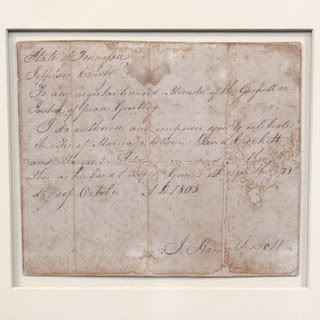 State of Tennessee
Jefferson County
To any regular licensed Minister of the Gospel or
Justice of peace Greeting
I do authorise and empower you to celebrate
the rites of Marriage between David Crockett
and Margaret
this as husband & wife Given at 21
day of October A D 1805
J. Hamilton